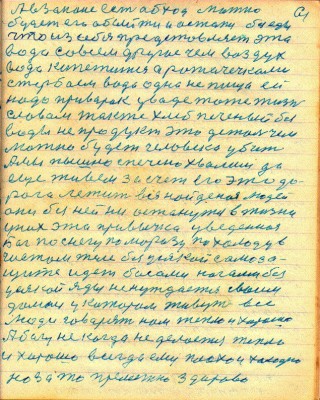 А в законе есть обход можно
будет его обойти и остани беды
что из себя представляет эта
вода совсем другое чем воздух
вода кипетится а
вода одна не пища ей
надо приварок у вады тоже жизнь
словам также хлеб печеный без
воды не продукт это детал чем
можно будет человека убит
Але пышно спечено хвалим да
еще живем за счет его это до-
рога лежит вся людей
они без ней ни останутя в жизни
у них эта привычка уведенная
как по снегу по морозу по холоду в
чистом теле без всякой самоза-
щите идет босами ногами без
усякой яды не нуждается своим
домам у котором живут все
люди говорят нам тепло и хорошо
А богу не когда не делается тепло
и хорошо всегда ему плохо и холодно
но за то приятно здарово